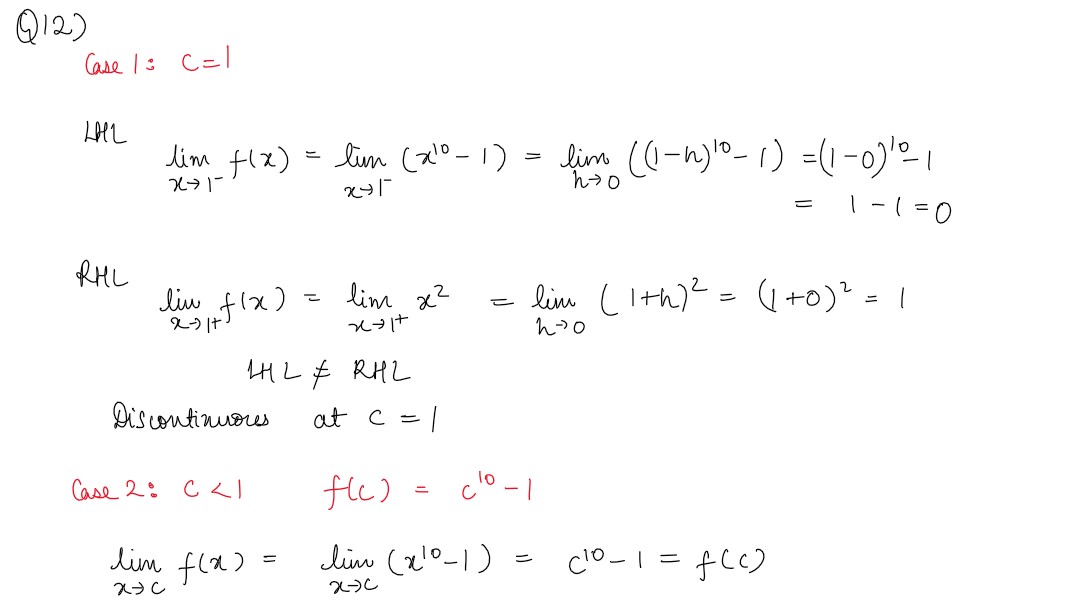 Q12)
Case 1: c=1
LHL
lim x→1⁻ f(x) = lim x→1⁻ (x¹⁰ - 1) = lim h→0 ((1-h)¹⁰ - 1) = (1-0)¹⁰ - 1
= 1 - 1 = 0
RHL
lim x→1⁺ f(x) = lim x→1⁺ x² = lim h→0 (1+h)² = (1+0)² = 1
LHL ≠ RHL
Discontinuous at c = 1
Case 2: c < 1 f(c) = c¹⁰ - 1
lim x→c f(x) = lim x→c (x¹⁰-1) = c¹⁰ - 1 = f(c)